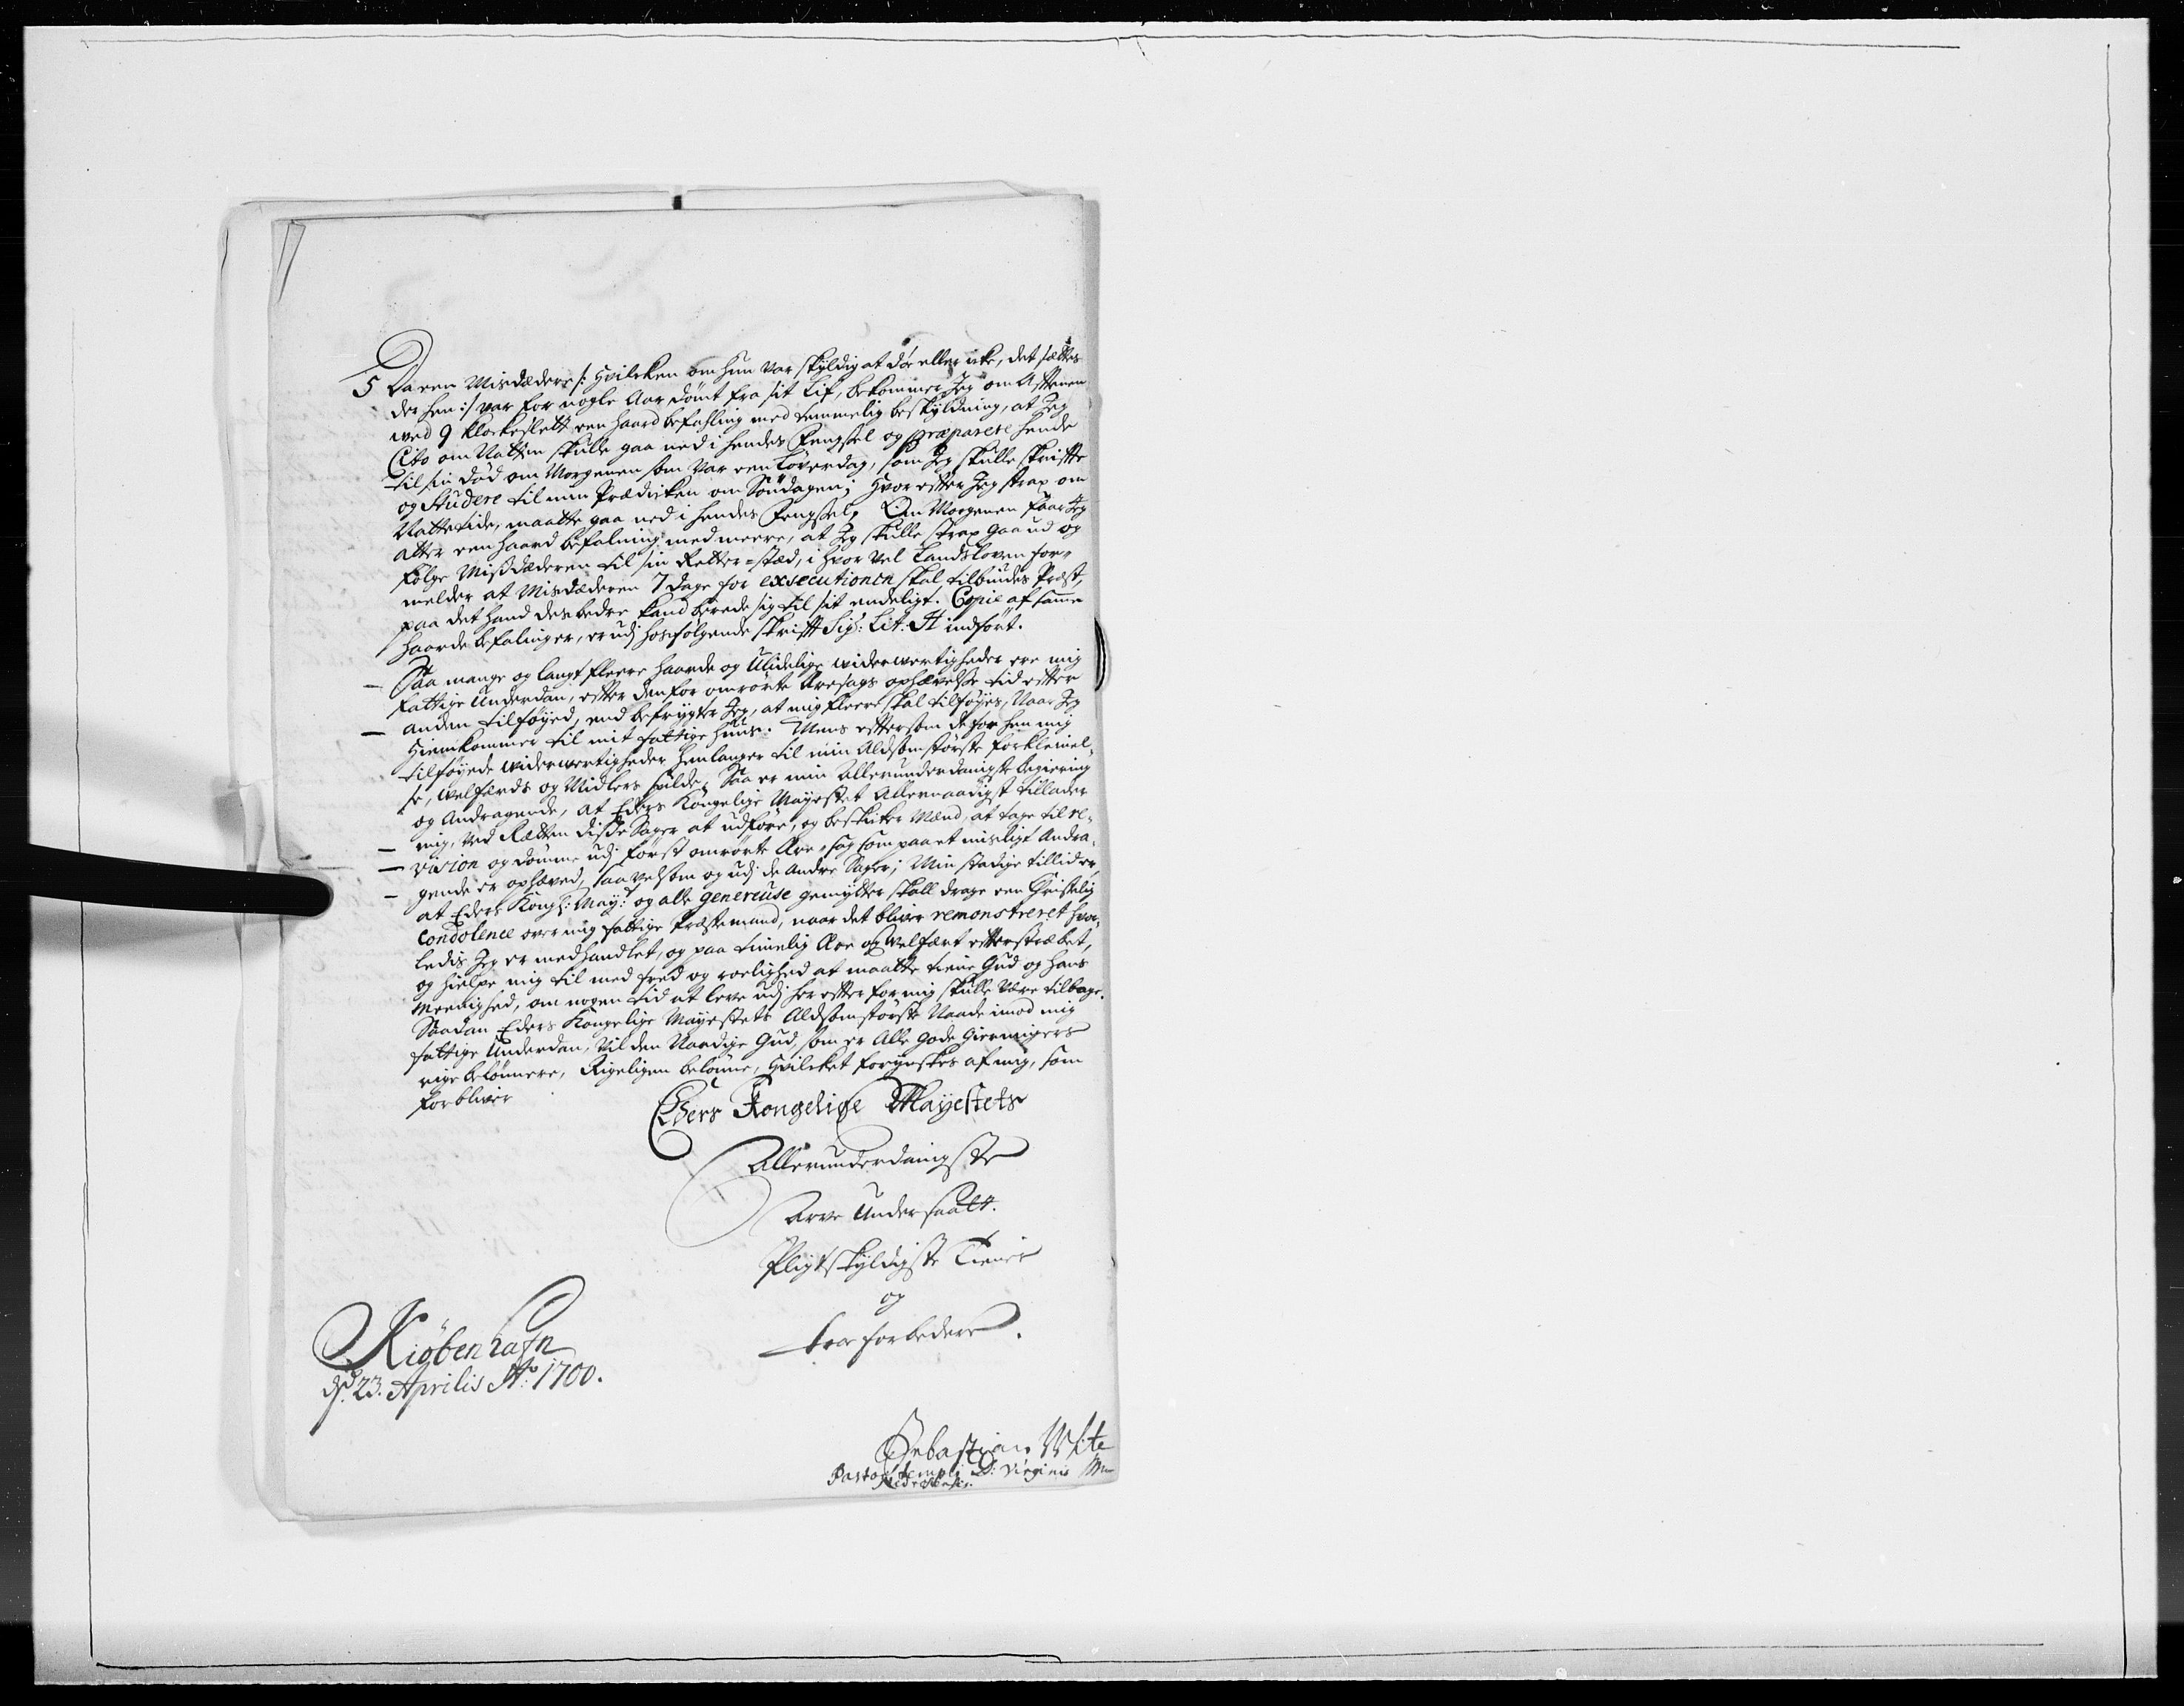 5 Da een Misdædere /: Hvilcken om hun var skyldig at döe eller icke, det sættes
der hen :/ var for nogle Aar dömt fra sit Lif, bekommer Jeg om Afftenen
wed 9 Klockeslett een haard befahling med temmelig beskyldning, at Jeg
Cito om Natten skulle gaa ned i hendes Fengssel og præparere hende
til sin död om Morgenen som var een Löverdag, som Jeg skulle skriffte
og Studere til min Prædicken om Söndagen; Hvor effter Jeg strax om
Nattetide, maatte gaa ned i hendes Fengssel, Om Morgenen faar Jeg
atter een haard befalning med meere, at Jeg skulle strax gaa ud og
fölge Missdæderen til sin Retter-sted, i hvor vel Landsloven for-
melder at Misdæderen 7 dage for exsecutionen skal tilbindes Præst,
paa det hand des bedre kand berede sig til sit endeligt. Copie af samme
haarde befalinger, er udj hosfölgende skrifft Sig: Lit: A indfört.
Saa mange og langt fleere haarde og Ulidelige widerwertigheder ere mig
fattige Underdan, effter den for omrörte Æresags ophævelse tid effter
anden tilföyed, end befrygter Jeg, at mig fleere skal tilföyes, Naar Jeg
Hiemkommer til mit fattige Huus. Mens efftersom de for hen mig
tilföyede widerwertigheder henlanger til min Aldsomstörste forkleinel-
se, welferds og Midlers spilde, Saa er min Allerunderdanigste begiering
og Andragende, at Eders Kongelige Mayestet Allernaadigst tillader
mig, ved Rætten disse Sager at udföre, og beskicker Mænd, at tage til re-
vision og dömme udj först omrörte Ære-sag som paa et misligt Andra-
gende er ophæved, saavelsom og udj de Andre Sager; Min stadige tillid er
at Eders Kongl: May:t og alle genereuse gemytter skall drage een Christelig
Condolence over mig fattige Præstemand, naar det bliver remonstreret hvor-
ledis Jeg er medhandlet, og paa timelig Ære og welfært effterstræbet,
og hielpe mig til med fred og roelighed at maatte tiene Gud og hans
Meenighed, om nogen tid at leve udj her effter for mig skulle være tilbage.
Saadan Eders Kongelige Mayestets Aldsomstörste Naade imod mig
fattige Underdan, vil den Naadige Gud, som er Alle gode Gierningers
rige belönnere, Rigeligen belönne, Hvilcket forynskes af mig, som
forbliver
Eders Kongelige Mayestets
Allerunderdanigste
Arve Undersaatt.
Pligtskyldigste Tiener
og
troe forbedere.
Kiöbenhafn
d. 23. Aprilis Ao 1700.
Sebastian
Pastor templi D: Virginis